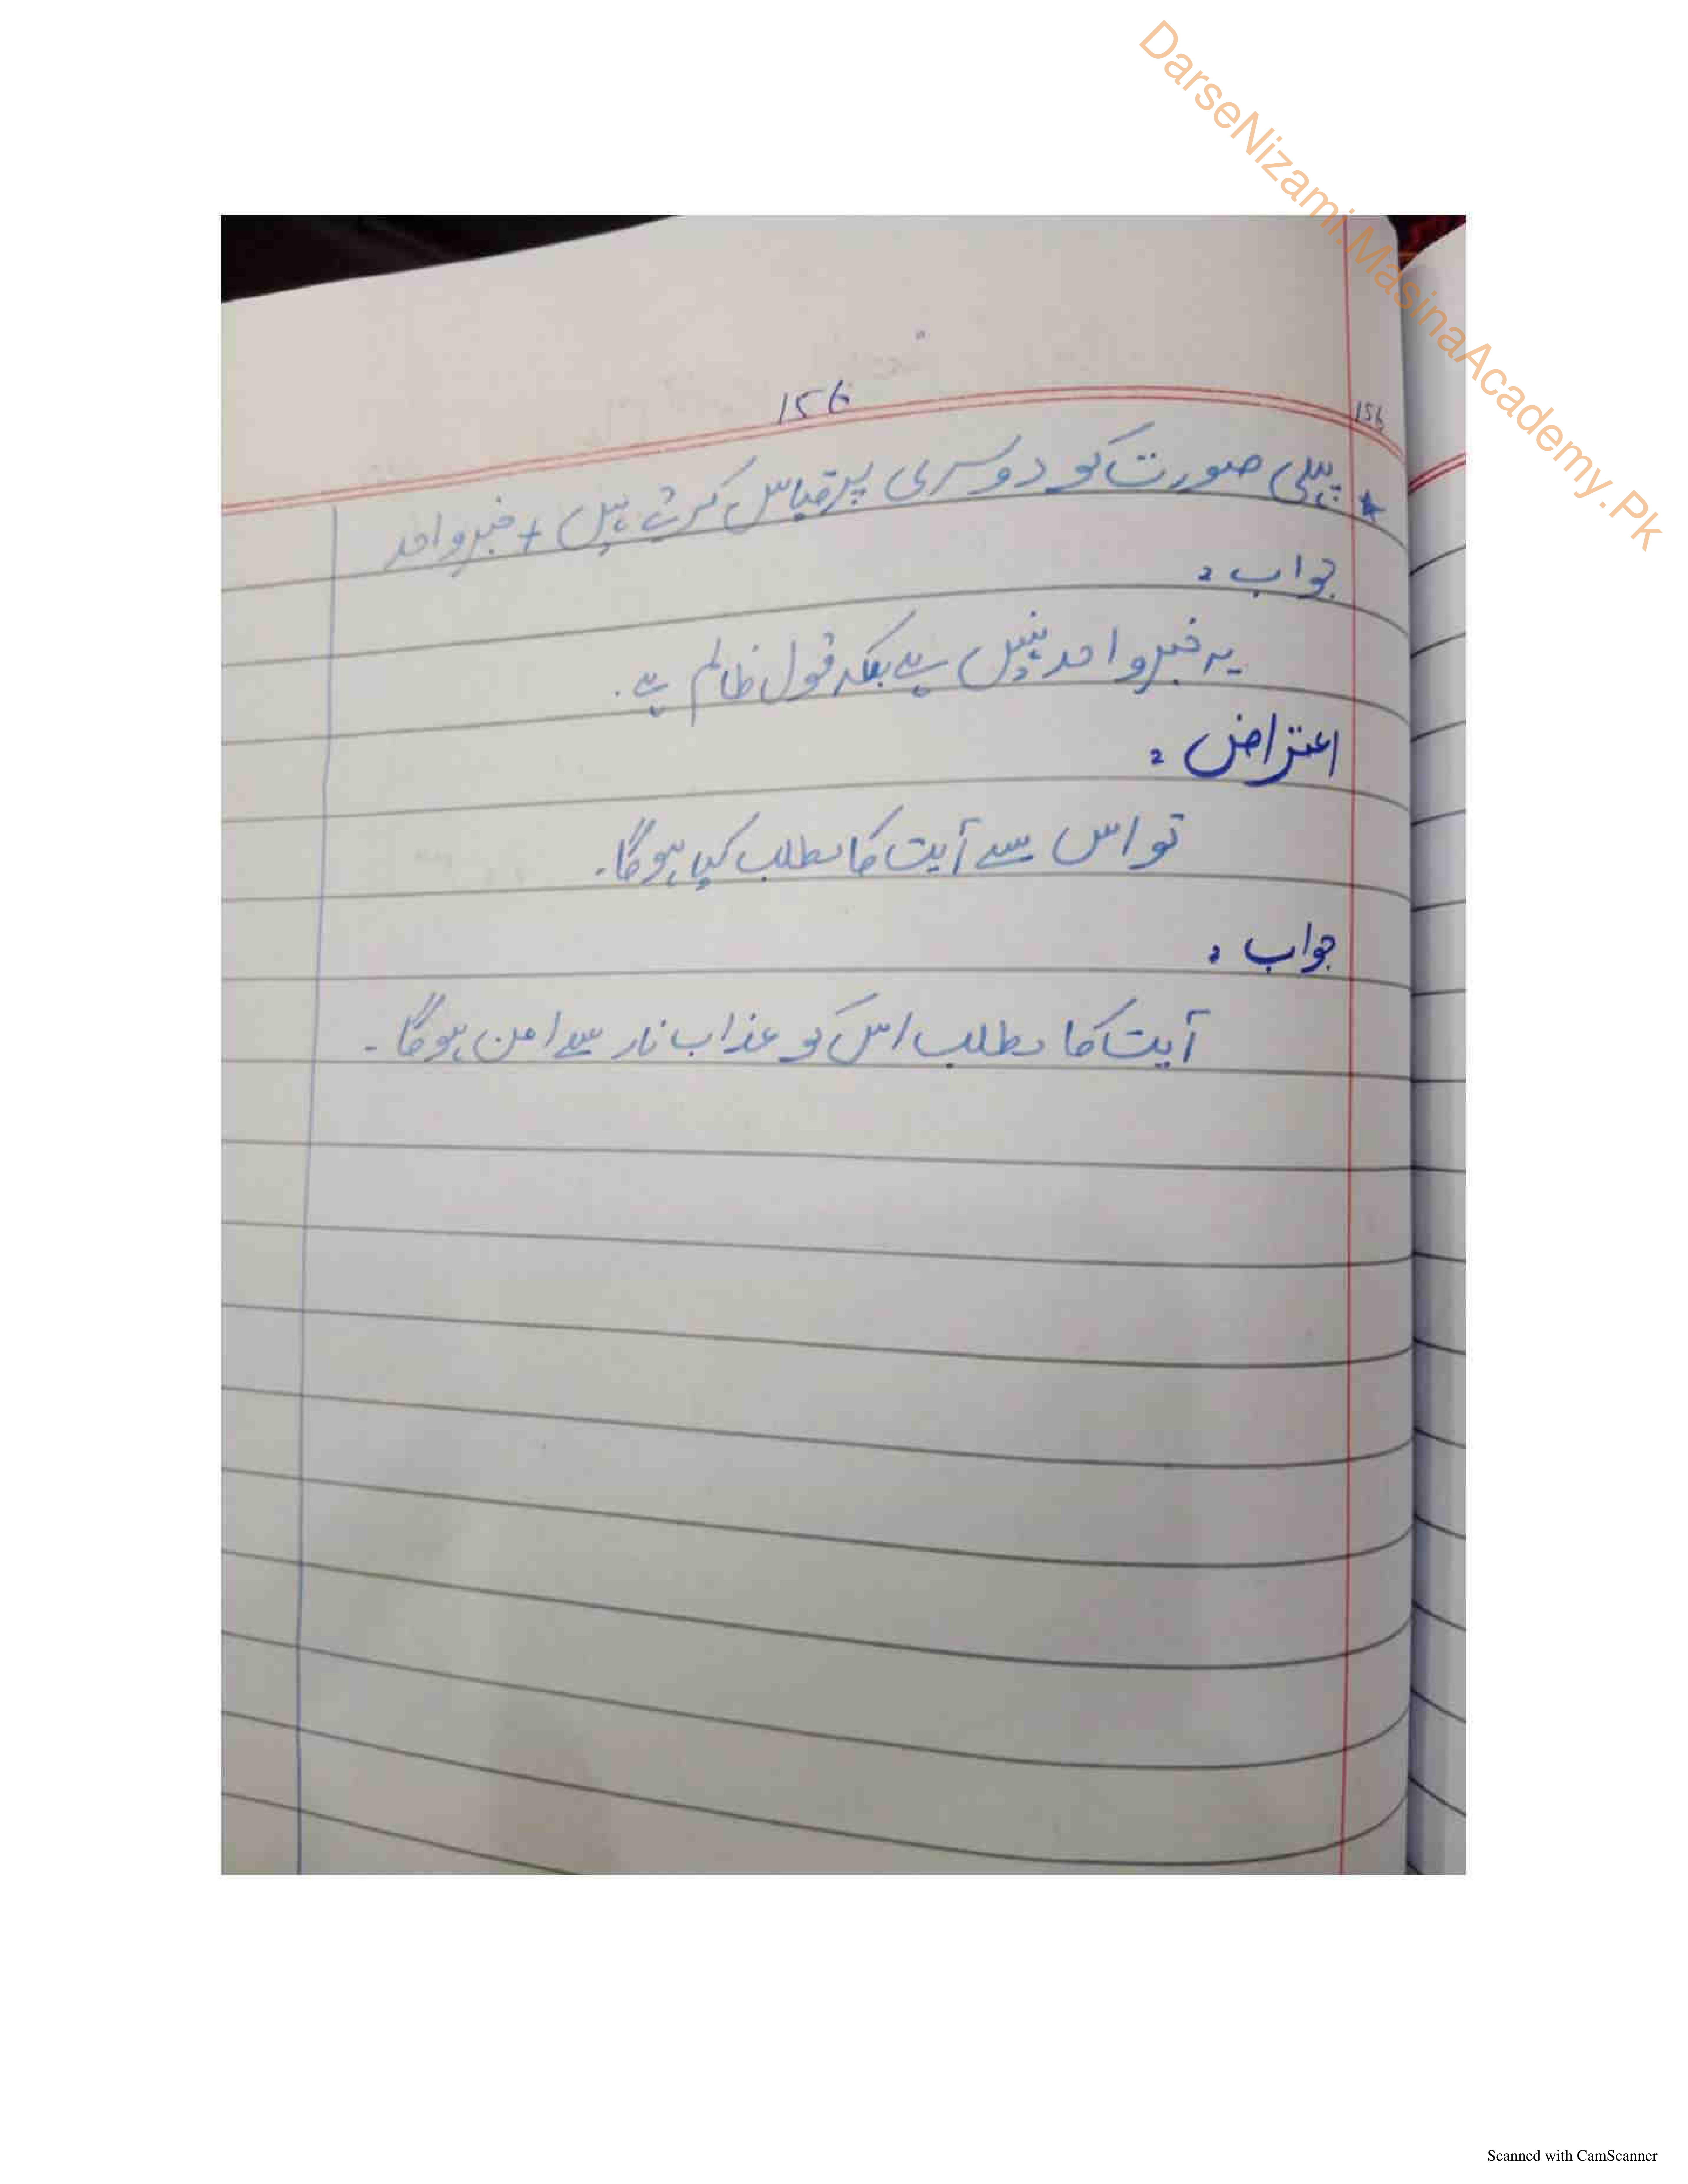 DarseNizami.MasinaAcademy.Pk
156
156
★ پہلی صورت کو دوسری پر قیاس کرتے ہیں + خبر واحد
جواب :
یہ خبر واحد نہیں ہے بلکہ قول ظالم ہے.
اعتراض :
تو اس سے آیت کا مطلب کیا ہوگا۔
جواب :
آیت کا مطلب اس کو عذاب نار سے امن ہوگا۔
Scanned with CamScanner